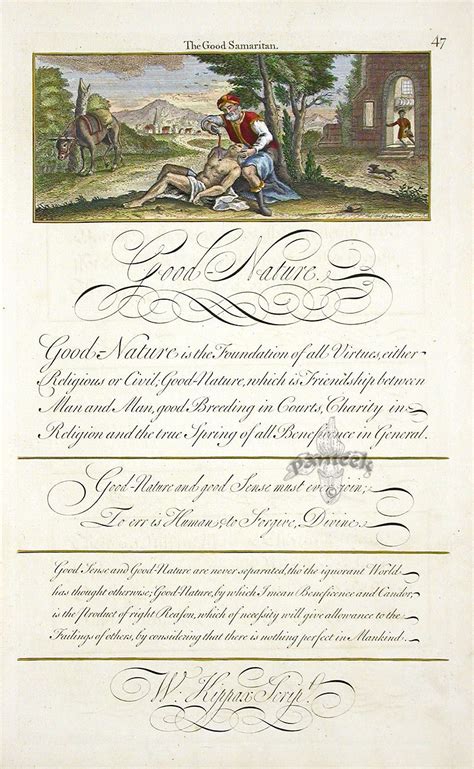 The Good Samaritan.
47
Good Nature.
Good-Nature is the Foundation of all Virtues, either
Religious or Civil, Good-Nature, which is Friendship between
Man and Man, good Breeding in Courts, Charity in
Religion and the true Spring of all Beneficence in General.
Panteek
Good-Nature and good Sense must ever join;
To err is Human & to Forgive, Divine.
Good Sense and Good-Nature are never separated, tho' the ignorant World
has thought otherwise; Good-Nature, by which I mean Beneficence and Candor,
is the Product of right Reason, which of necessity will give allowance to the
Failings of others, by considering that there is nothing perfect in Mankind.
W. Kippax Script.